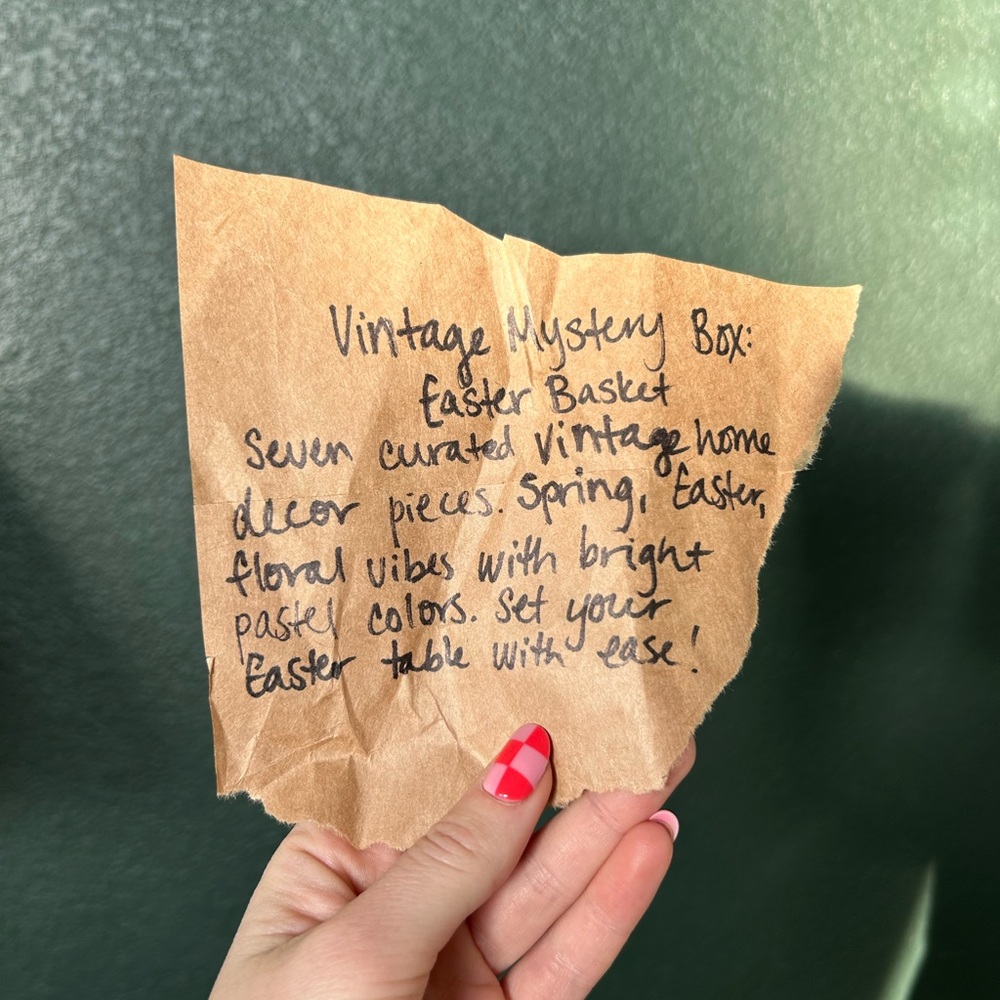 Vintage Mystery Box:
Easter Basket
Seven curated vintage home
decor pieces. Spring, Easter,
floral vibes with bright
pastel colors. Set your
Easter table with ease!